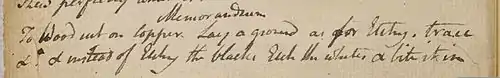 Their perfectly
Memorandum
To Wood cut on Copper. Lay a ground as for Etching, trace
&c. & instead of Etching the blacks Etch the whites & bite it in